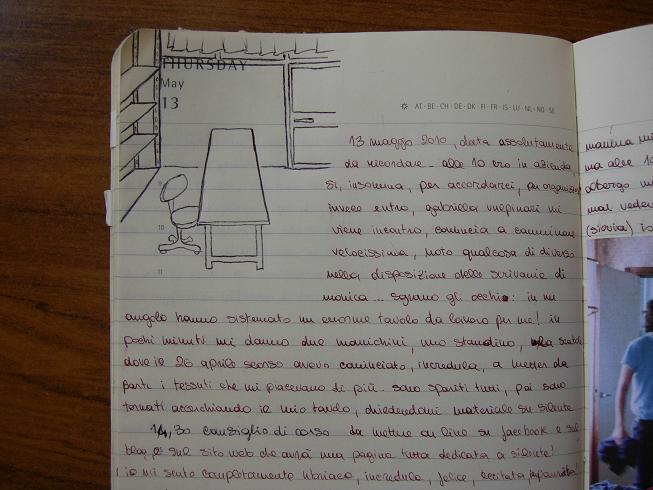 THURSDAY
May
13
AT · BE · CH · DE · DK · FI · FR · IS · LU · NL · NO · SE
13 maggio 2010, data assolutamente
da ricordare - alle 10 ero in azienda,
sì, insomma, per accordarci, per organizzare
invece entro, gabriella vulpinari mi
viene incontro, comincia a camminare
velocissima, noto qualcosa di diverso
nella disposizione delle scrivanie di
monica ... sgrano gli occhi: in un
angolo hanno sistemato un enorme tavolo da lavoro per me! in
pochi minuti mi danno due manichini, uno standino, la scatola
dove il 26 aprile scorso avevo cominciato, incredula, a metter da
parte i tessuti che mi piacevano di più. sono spariti tutti, poi sono
tornati accerchiando il mio tavolo, chiedendomi materiale su silente
14,30 consiglio di corso da mettere on line su facebook e sul
blog e sul sito web che avrà una pagina tutta dedicata a silente!
io mi sento completamente ubriaca, incredula, felice, eccitata,
9
10
11
manina mi
ma alle 10
albergo
mai veder
(sioria) io